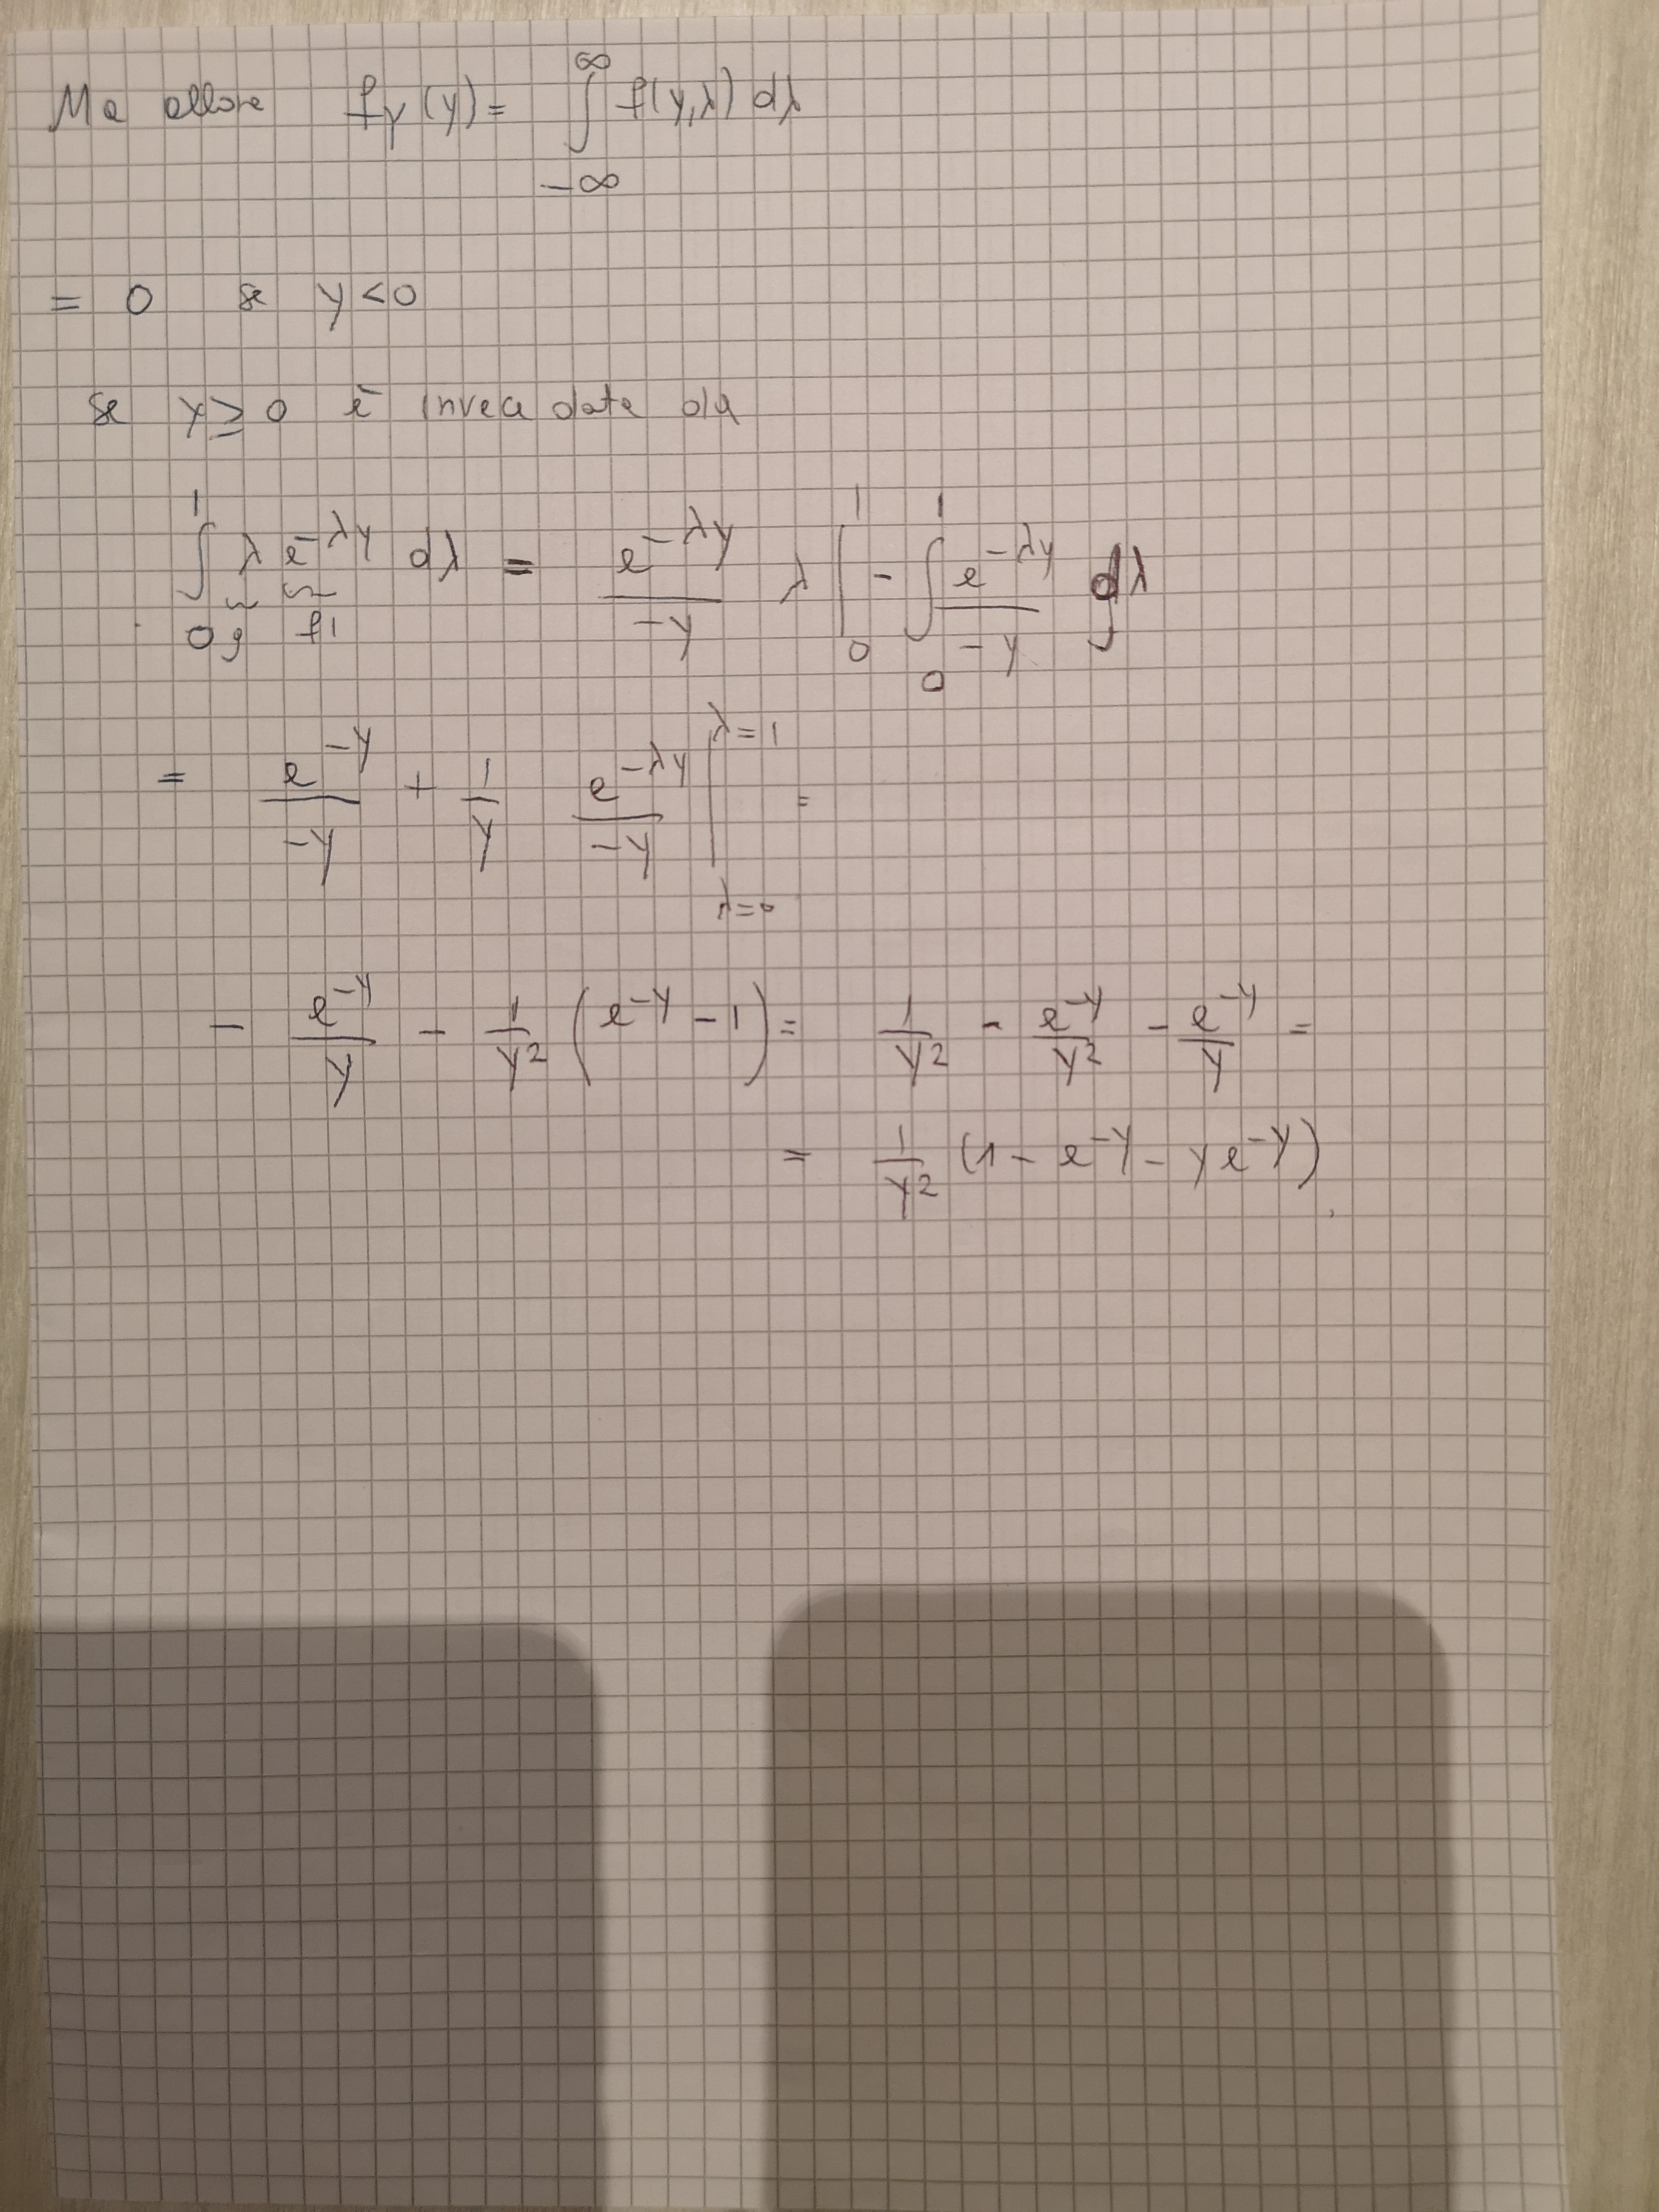 Ma allora f_Y(y) = ∫_{-∞}^{∞} f(y,λ) dλ
= 0 se y < 0
se y ≥ 0 è invece data da
∫_0^1 λ e^{-λy} dλ = e^{-λy}/(-y) λ |_0^1 - ∫_0^1 e^{-λy}/(-y) dλ
g f'
= e^{-y}/(-y) + 1/y e^{-λy}/(-y) |_{λ=0}^{λ=1} =
- e^{-y}/y - 1/y² (e^{-y} - 1) = 1/y² - e^{-y}/y² - e^{-y}/y =
= 1/y² (1 - e^{-y} - y e^{-y}).